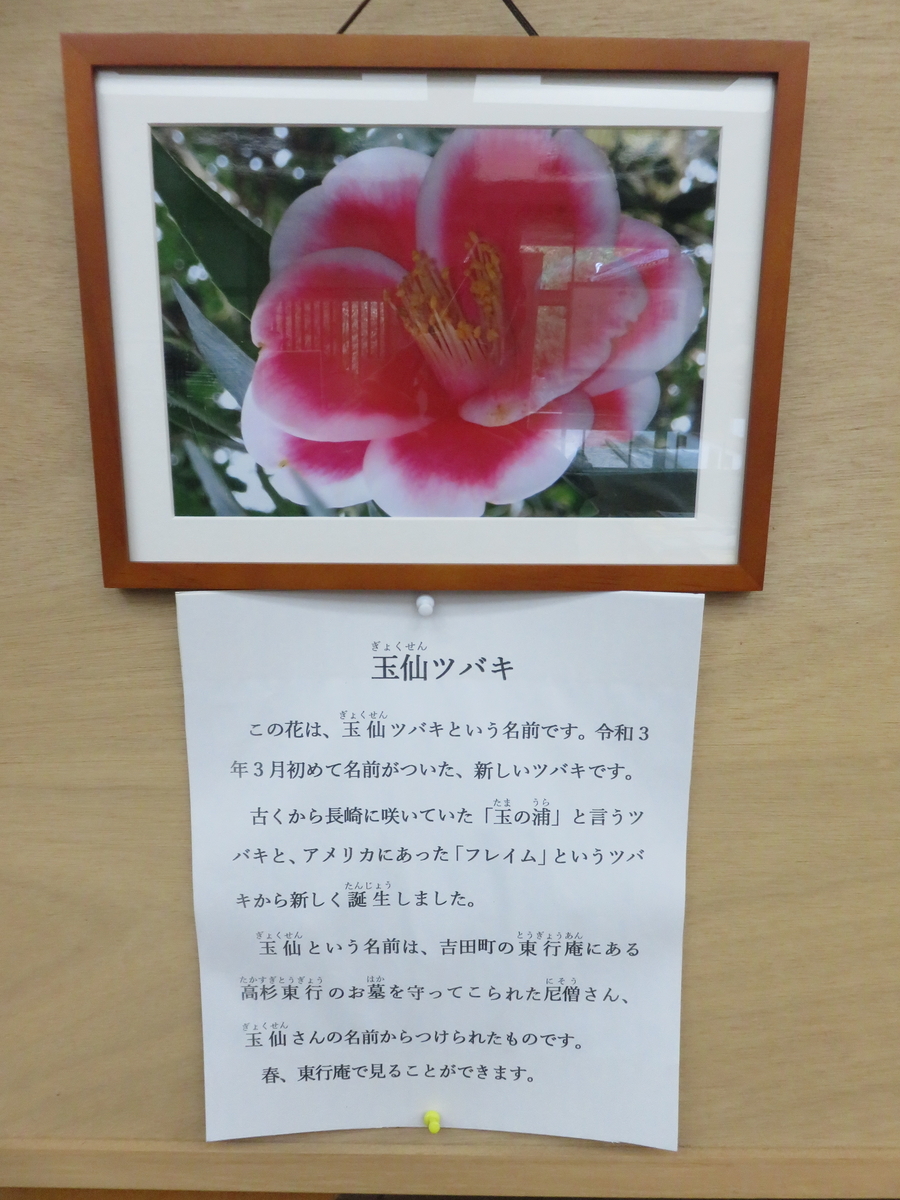 玉仙ツバキ
この花は、玉仙ツバキという名前です。令和3
年3月初めて名前がついた、新しいツバキです。
古くから長崎に咲いていた「玉の浦」と言うツ
バキと、アメリカにあった「フレイム」というツバ
キから新しく誕生しました。
玉仙という名前は、吉田町の東行庵にある
高杉東行のお墓を守ってこられた尼僧さん、
玉仙さんの名前からつけられたものです。
春、東行庵で見ることができます。